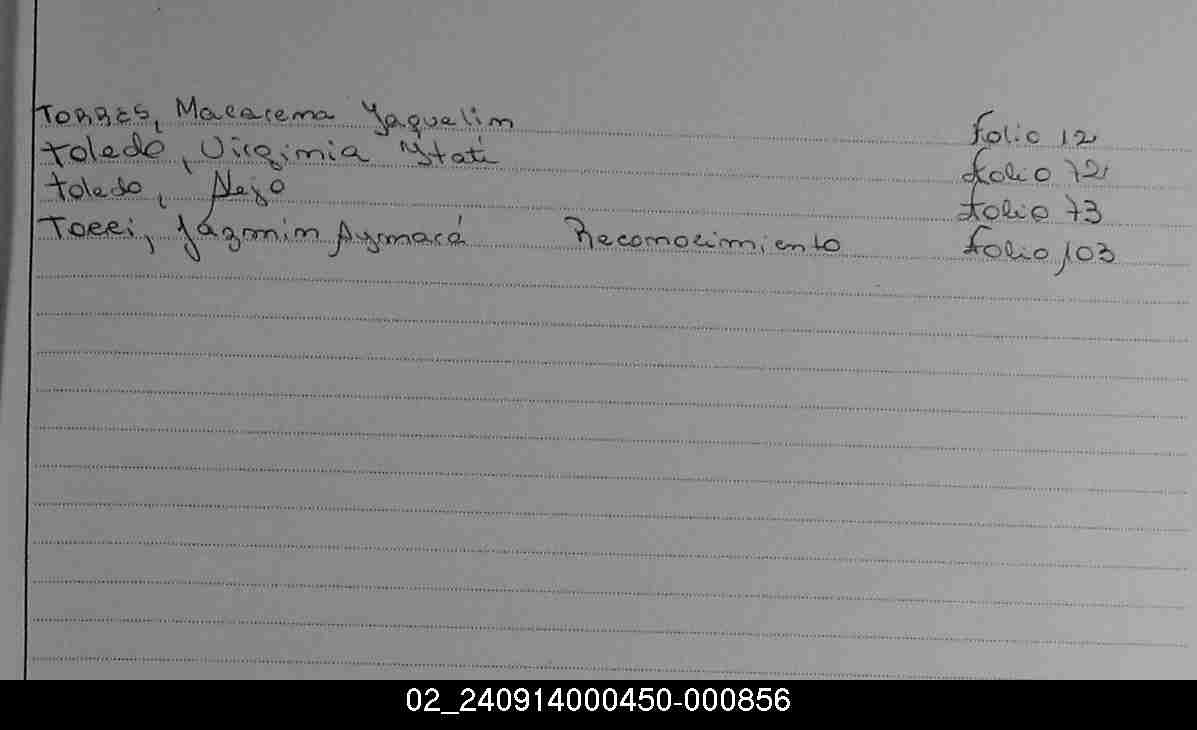 TORRES, Macarena Yaquelin folio 12
Toledo, Virginia Ytatí folio 72
Toledo, folio 73
Tocci, Jázmin Aymará Reconocimiento folio 103
02_240914000450-000856